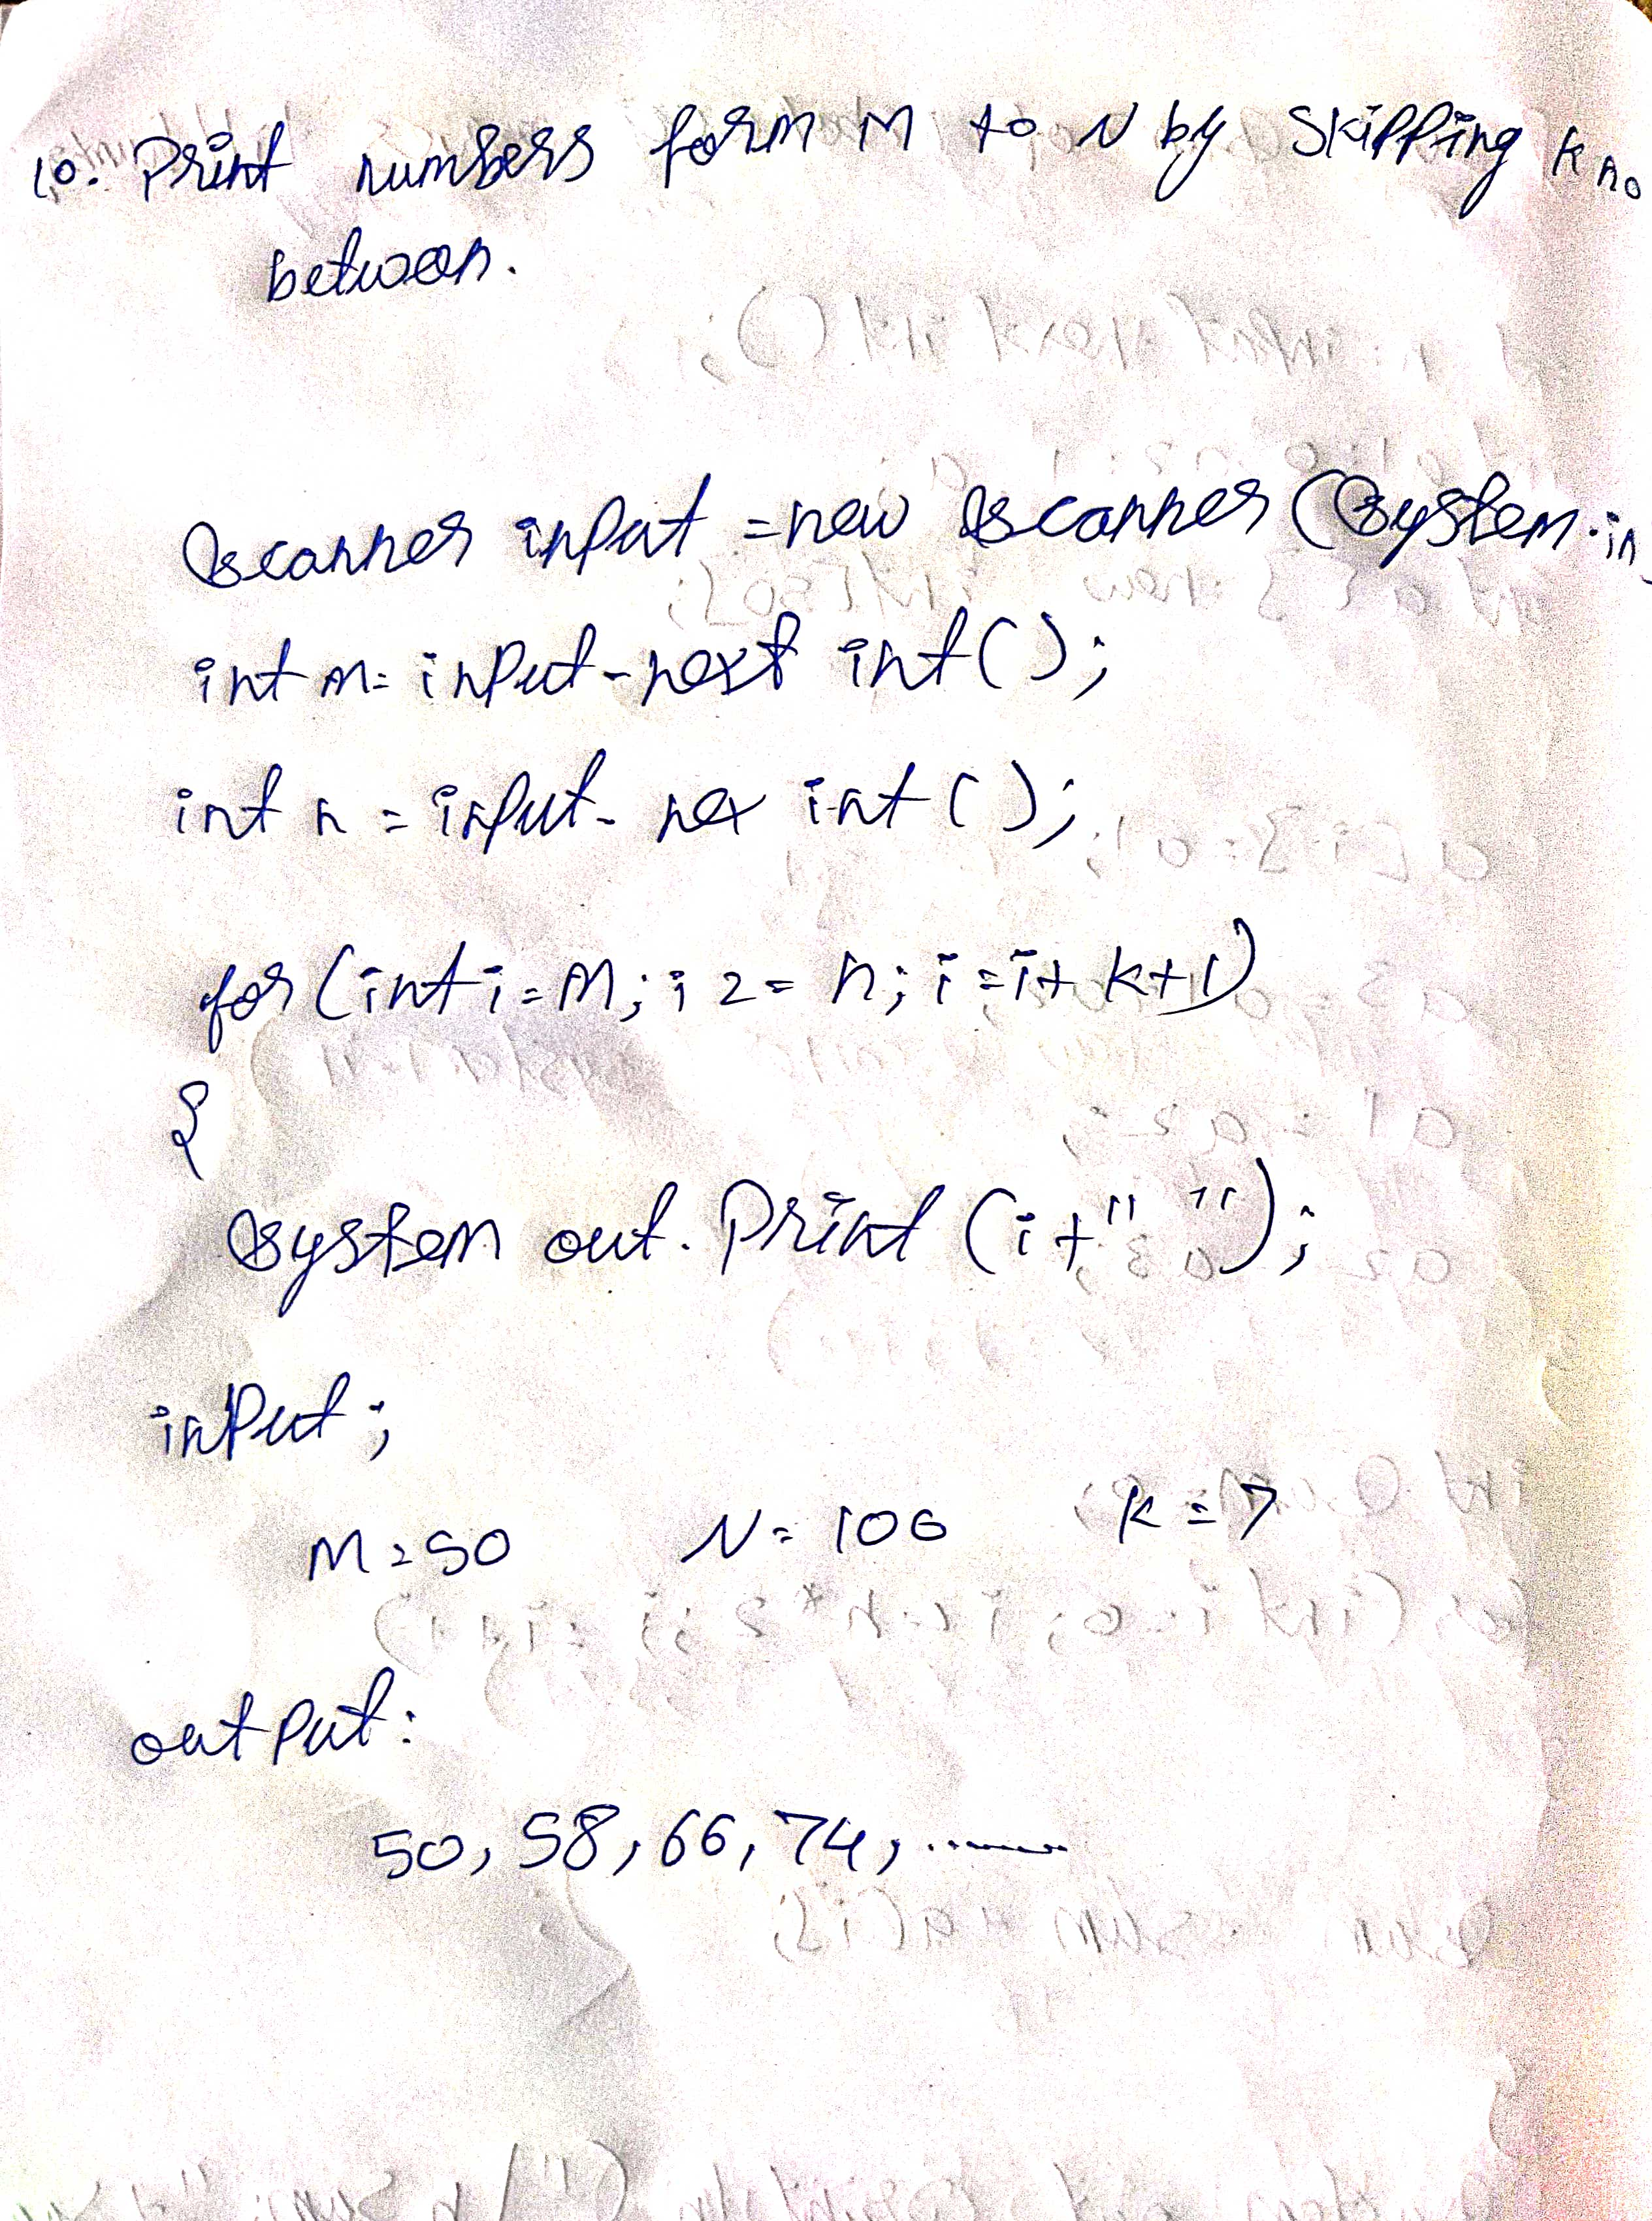 10. Print numbers form M to N by Skipping k no
between.
Scanner input = new Scanner (System.in
int m = input-next int();
int n = input- nex int();
for (int i = M; i 2 = n; i = i + k+1)
{
System out. Print (i+" ");
input;
M = 50 N = 106 K = 7
output:
50, 58, 66, 74, .......